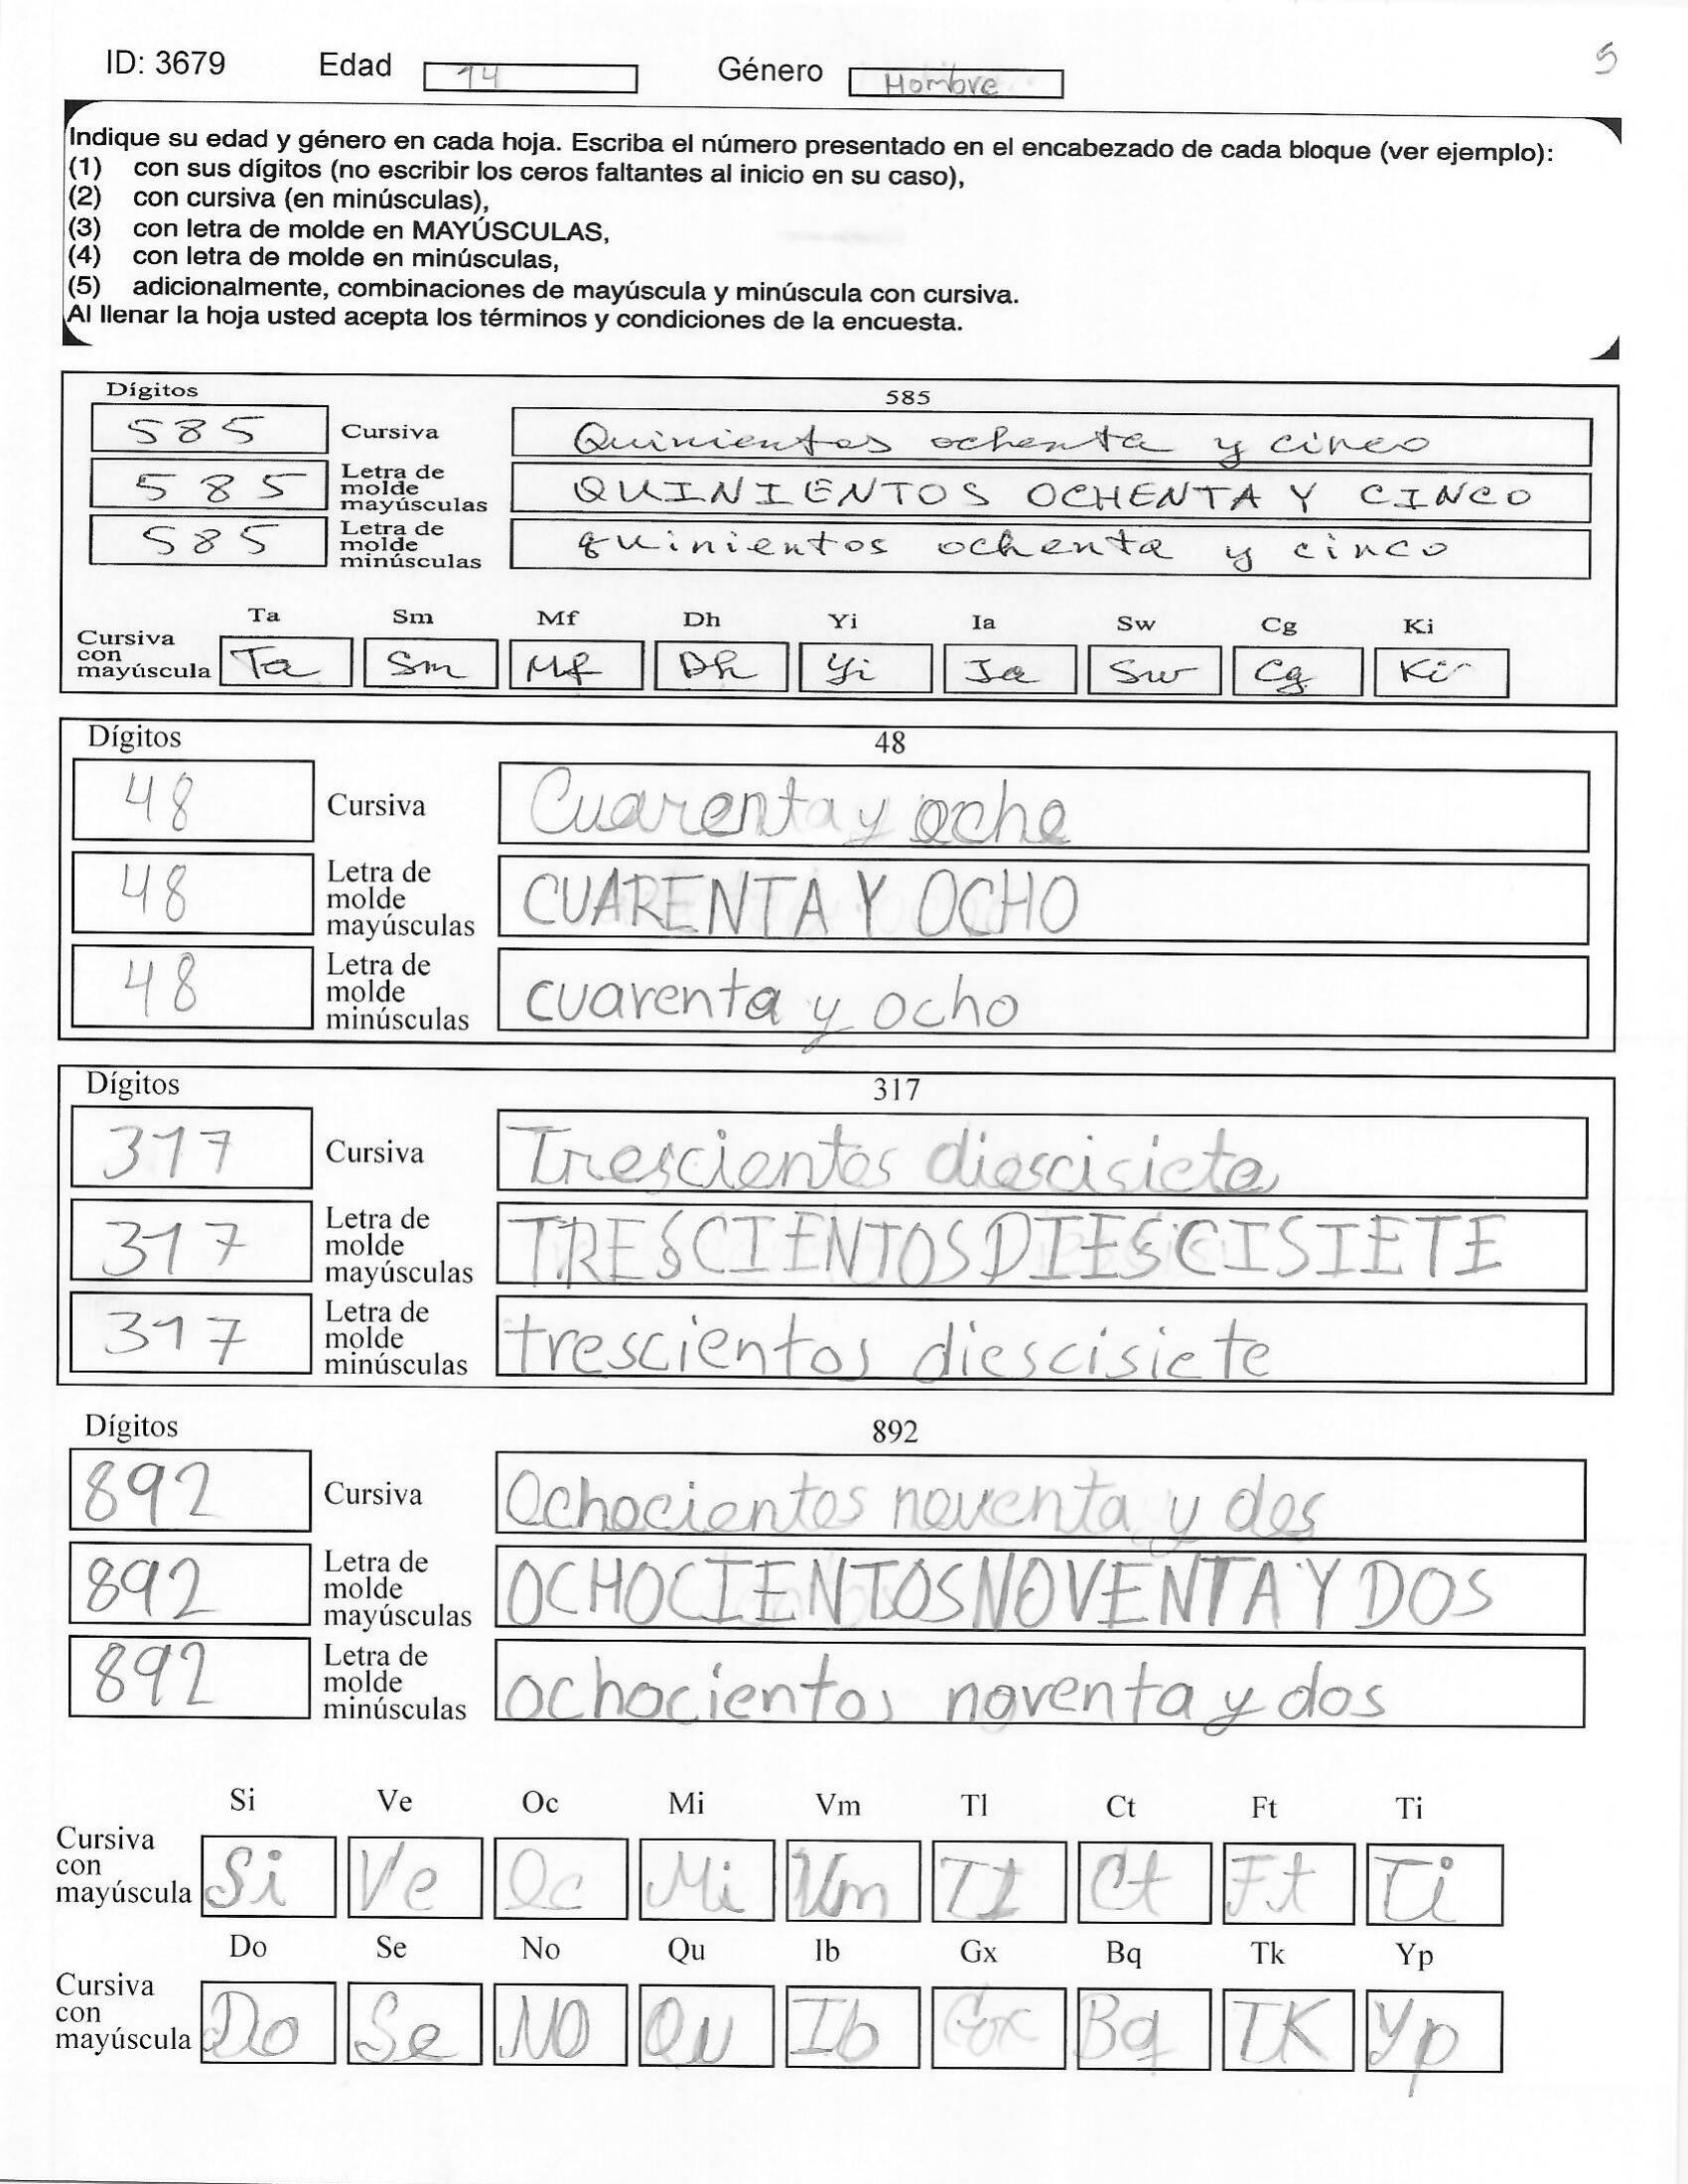 ID: 3679 Edad 14 Género Hombre 5
Indique su edad y género en cada hoja. Escriba el número presentado en el encabezado de cada bloque (ver ejemplo):
(1) con sus dígitos (no escribir los ceros faltantes al inicio en su caso),
(2) con cursiva (en minúsculas),
(3) con letra de molde en MAYÚSCULAS,
(4) con letra de molde en minúsculas,
(5) adicionalmente, combinaciones de mayúscula y minúscula con cursiva.
Al llenar la hoja usted acepta los términos y condiciones de la encuesta.
Dígitos 585
585 Cursiva Quinientos ochenta y cinco
585 Letra de molde mayúsculas QUINIENTOS OCHENTA Y CINCO
585 Letra de molde minúsculas quinientos ochenta y cinco
Ta Sm Mf Dh Yi Ia Sw Cg Ki
Cursiva con mayúscula Ta Sm Mf Dh Yi Ia Sw Cg Ki
Dígitos 48
48 Cursiva Cuarenta y ocho
48 Letra de molde mayúsculas CUARENTA Y OCHO
48 Letra de molde minúsculas cuarenta y ocho
Dígitos 317
317 Cursiva Trescientos diescisiete
317 Letra de molde mayúsculas TRESCIENTOS DIESCISIETE
317 Letra de molde minúsculas trescientos diescisiete
Dígitos 892
892 Cursiva Ochocientos noventa y dos
892 Letra de molde mayúsculas OCHOCIENTOS NOVENTA Y DOS
892 Letra de molde minúsculas ochocientos noventa y dos
Si Ve Oc Mi Vm Tl Ct Ft Ti
Cursiva con mayúscula Si Ve Oc Mi Vm Tl Ct Ft Ti
Do Se No Qu Ib Gx Bq Tk Yp
Cursiva con mayúscula Do Se NO Qu Ib Gx Bq TK Yp